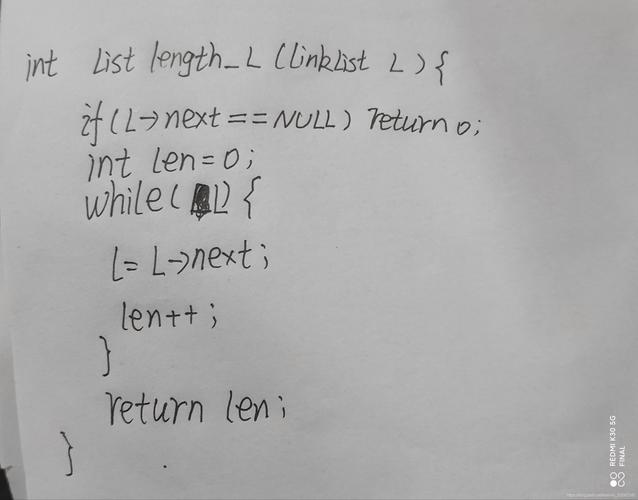 int List length_L (linkList L) {
if(L->next==NULL) return 0;
int len=0;
while( L) {
L= L->next;
len++;
}
return len;
}
REDMI K30 5G
FINAL